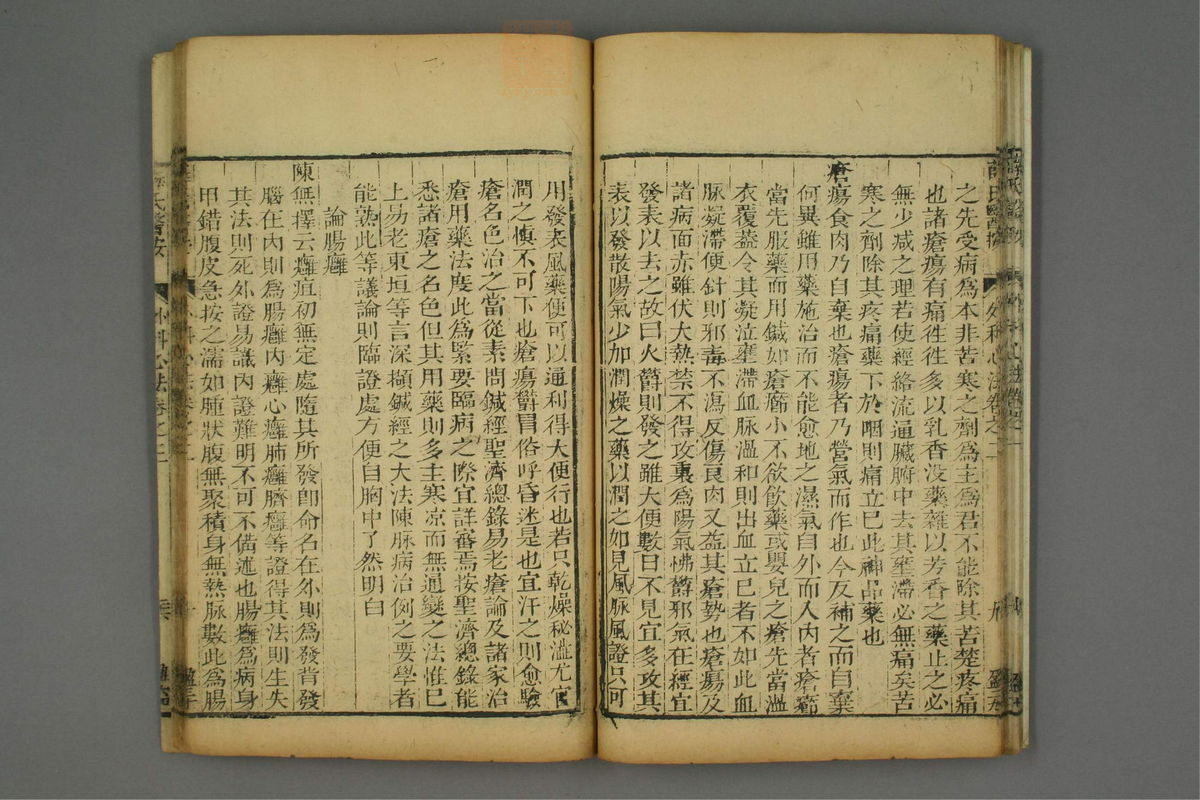 之先受病為本非苦寒之劑為主為君不能除其苦楚疼痛
也諸瘡瘍有痛徃徃多以乳香没藥雜以芳香之藥止之必
無少減之理若使經絡流通臟腑中去其壅滯必無痛矣苦
寒之劑除其疼痛藥下於咽則痛立已此神品藥也
瘡瘍食肉乃自棄也瘡瘍者乃營氣而作也今反補之而自棄
何異雖用藥施治而不能愈地之濕氣自外而入內者瘡癤
當先服藥而用鍼如瘡癤小不欲飲藥或嬰兒之瘡先當溫
衣覆葢令其凝泣壅滯血脉溫和則出血立已者不如此血
脉凝滯便針則邪毒不瀉反傷良肉又益其瘡勢也瘡瘍及
諸病面赤雖伏大熱禁不得攻裏為陽氣怫欝邪氣在經宜
發表以去之故曰火欝則發之雖大便數日不見宜多攻其
表以發散陽氣少加潤燥之藥以潤之如見風脉風證只可
用發表風藥便可以通利得大便行也若只乾燥秘澁尤宜
潤之慎不可下也瘡瘍欝冒俗呼昏迷是也宜汗之則愈驗
瘡名色治之當從素問鍼經聖濟總錄易老瘡論及諸家治
瘡用藥法度此為緊要臨病之際宜詳審焉按聖濟總錄能
悉諸瘡之名色但其用藥則多主寒凉而無通變之法惟已
上易老東垣等言深擷鍼經之大法陳脉病治例之要學者
能熟此等議論則臨證處方便自胸中了然明白
論腸癰
陳無擇云癰疽初無定處隨其所發卽命名在外則為發背發
腦在內則為腸癰內癰心癰肺癰臍癰等證得其法則生失
其法則死外證易識內證難明不可不備述也腸癰為病身
甲錯腹皮急按之濡如腫狀腹無聚積身無熱脉數此為腸
薛氏醫按
外科心法卷之二